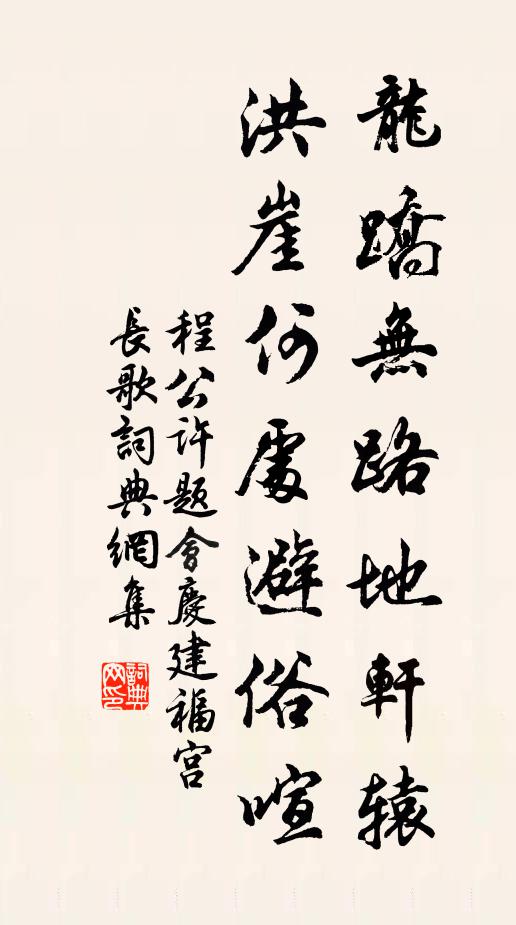 龍蹻無路地軒辕
洪崖何處避俗喧
程公許题會慶建福宫
長歌詞典網集
詞典网印